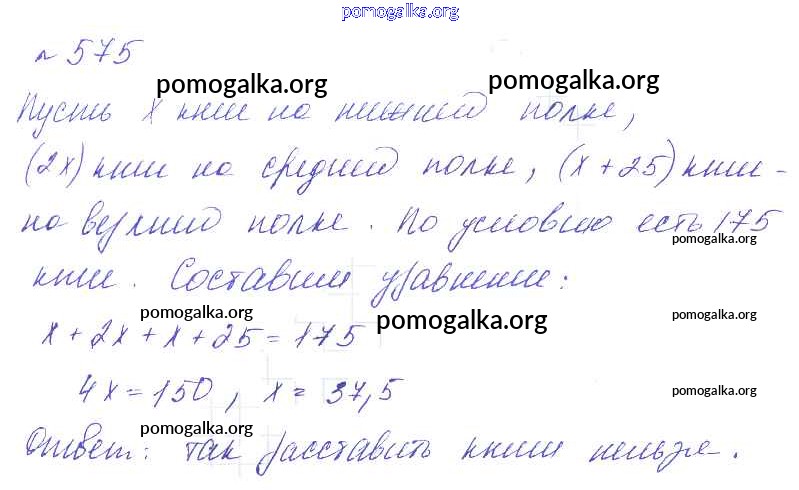 pomogalka.org
№ 575
pomogalka.org pomogalka.org
Пусть x книг на нижней полке,
(2x) книг на средней полке, (x + 25) книг -
на верхней полке. По условию есть 175
pomogalka.org
книг. Составим уравнение:
pomogalka.org pomogalka.org pomogalka.org
x + 2x + x + 25 = 175
4x = 150, x = 37,5
pomogalka.org
pomogalka.org pomogalka.org
Ответ: так расставить книги нельзя.
pomogalka.org